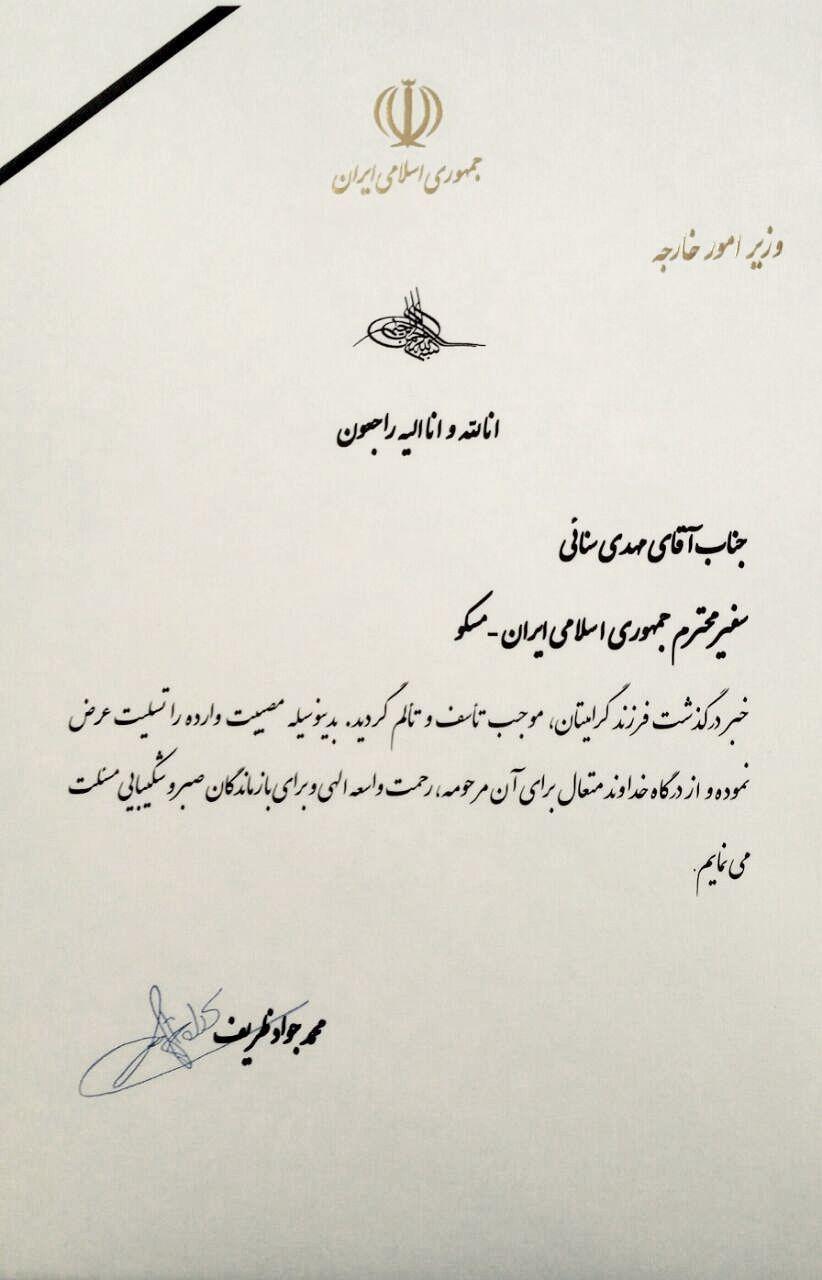 جمهوری اسلامی ایران
وزیر امور خارجه
انا لله و انا الیه راجعون
جناب آقای مهدی سنائی
سفیر محترم جمهوری اسلامی ایران - مسکو
خبر درگذشت فرزند گرامیتان، موجب تأسف و تألم گردید. بدینوسیله مصیبت وارده را تسلیت عرض
نموده و از درگاه خداوند متعال برای آن مرحومه، رحمت واسعه الهی و برای بازماندگان صبر و شکیبایی مسئلت
می نمایم.
محمد جواد ظریف